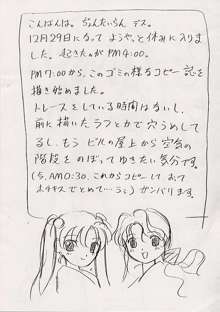 こんばんは。ちょんたいらん デス。
12月29日になって ようやっと休みに入り
ました。起きたのがPM4:00。
PM7:00から、このゴミの様なコピー誌を
描き始めました。
トレースをしている時間は無いし、
前に描いたラフとかで穴うめしてる
し、もう ビルの屋上から空台の
階段を のぼって ゆきたい気分です。
(S. AM0:30. これからコピーして おって
ホチキスでとめて…うぅ) ガンバリます。